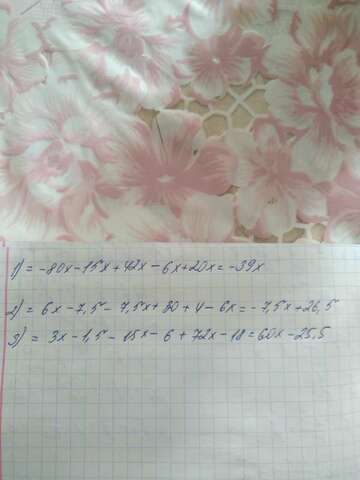 1) = -80x-15x+42x-6x+20x=-39x
2) = 6x-7,5-7,5x+30+4-6x=-7,5x+26,5
3) = 3x-1,5-15x-6+72x-18=60x-25,5